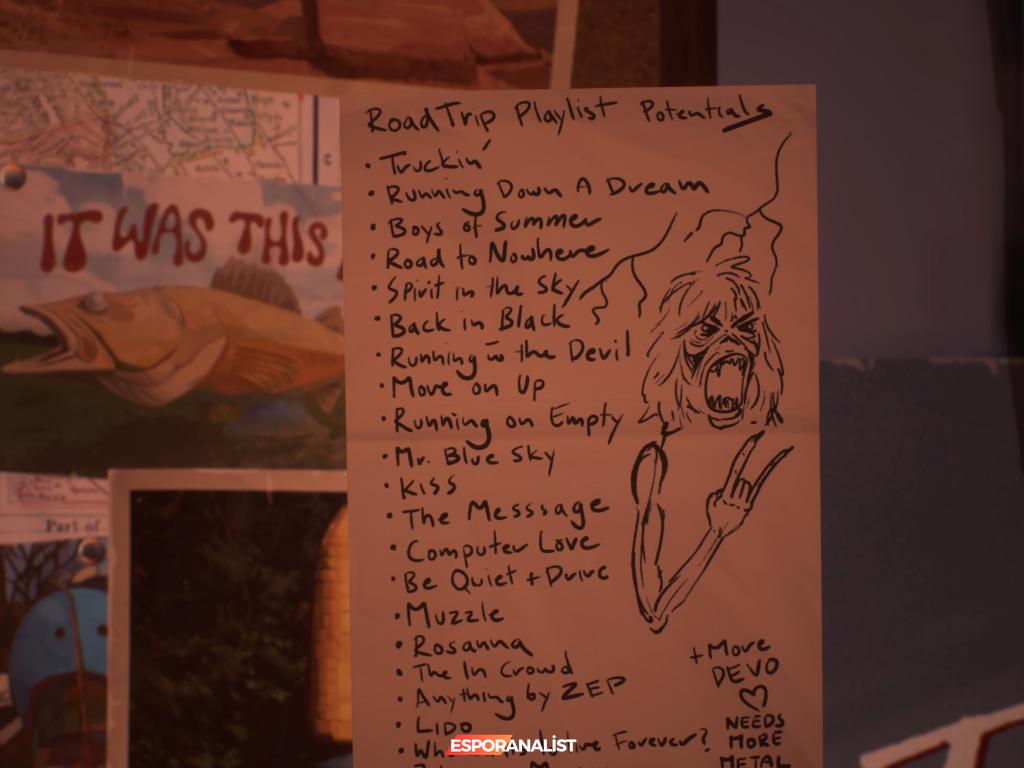 RoadTrip Playlist Potentials
• Truckin'
• Running Down A Dream
• Boys of Summer
• Road to Nowhere
• Spirit in the Sky
• Back in Black
• Running w the Devil
• Move on Up
• Running on Empty
• Mr. Blue Sky
• KISS
• The Messsage
• Computer Love
• Be Quiet + Drive
• Muzzle
• Rosanna
• The In Crowd
• Anything by ZEP
• LIDO
Forever?
+ More
DEVO
♡
NEEDS
MORE
METAL
IT WAS THIS
Part of
ESPORANALİST